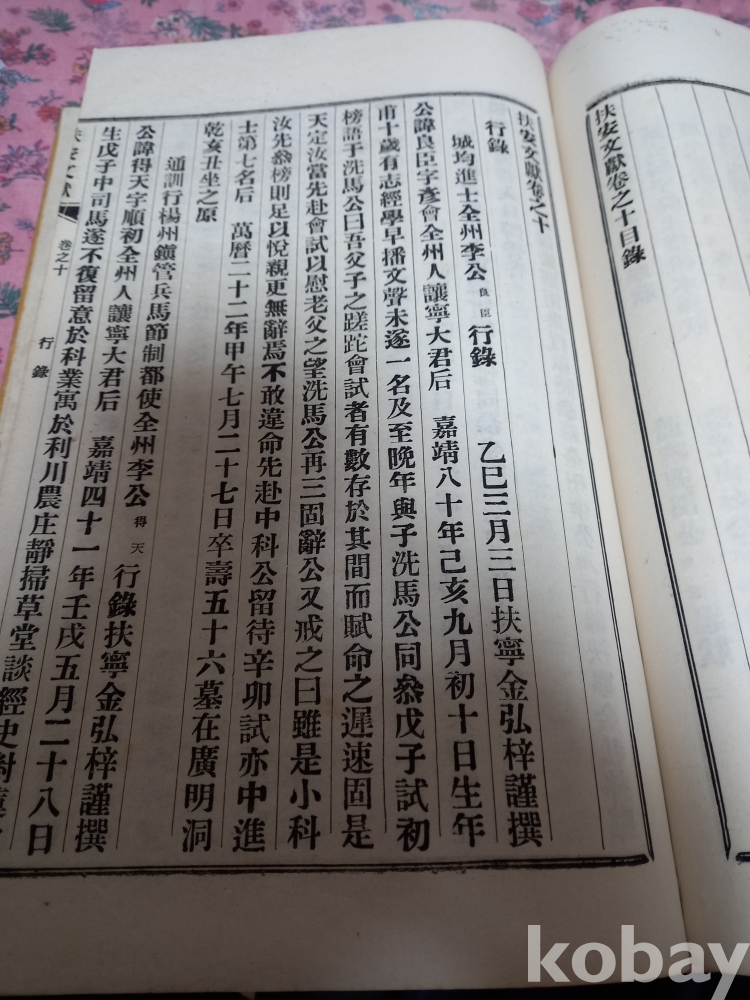 扶安文獻卷之十目錄
扶安文獻卷之十
行錄
城均進士全州李公良臣行錄 乙巳三月三日扶寧金弘梓謹撰
公諱良臣字彥會全州人讓寧大君后 嘉靖八十年己亥九月初十日生年
甫十歲有志經學早播文聲未遂一名及至晚年與子洗馬公同叅戊子試初
榜語于洗馬公曰吾父子之蹉跎會試者有數存於其間而賦命之遲速固是
天定汝當先赴會試以慰老父之望洗馬公再三固辭公又戒之曰雖是小科
汝先叅榜則足以悅親更無辭焉不敢違命先赴中科公留待辛卯試亦中進
士第七名后 萬曆二十二年甲午七月二十七日卒壽五十六墓在廣明洞
乾亥丑坐之原
通訓行楊州鎭管兵馬節制都使全州李公得天行錄扶寧金弘梓謹撰
公諱得天字順初全州人讓寧大君后 嘉靖四十一年壬戌五月二十八日
生戊子中司馬遂不復留意於科業寓於利川農庄靜掃草堂談經史對
安文獻 卷之十 行錄
kobay